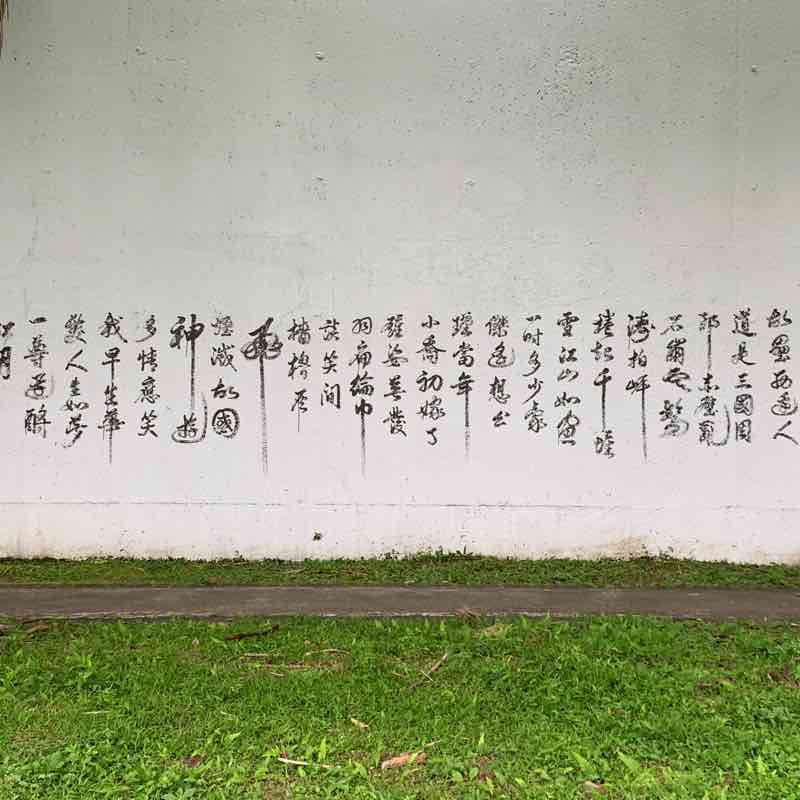 故壘西邊人
道是三國周
郎赤壁亂
石崩雲驚
濤拍岸
捲起千堆
雪江山如畫
一時多少豪
傑遙想公
瑾當年
小喬初嫁了
雄姿英發
羽扇綸巾
談笑間
檣櫓灰
飛
煙滅故國
神遊
多情應笑
我早生華
髮人生如夢
一尊還酹
江月